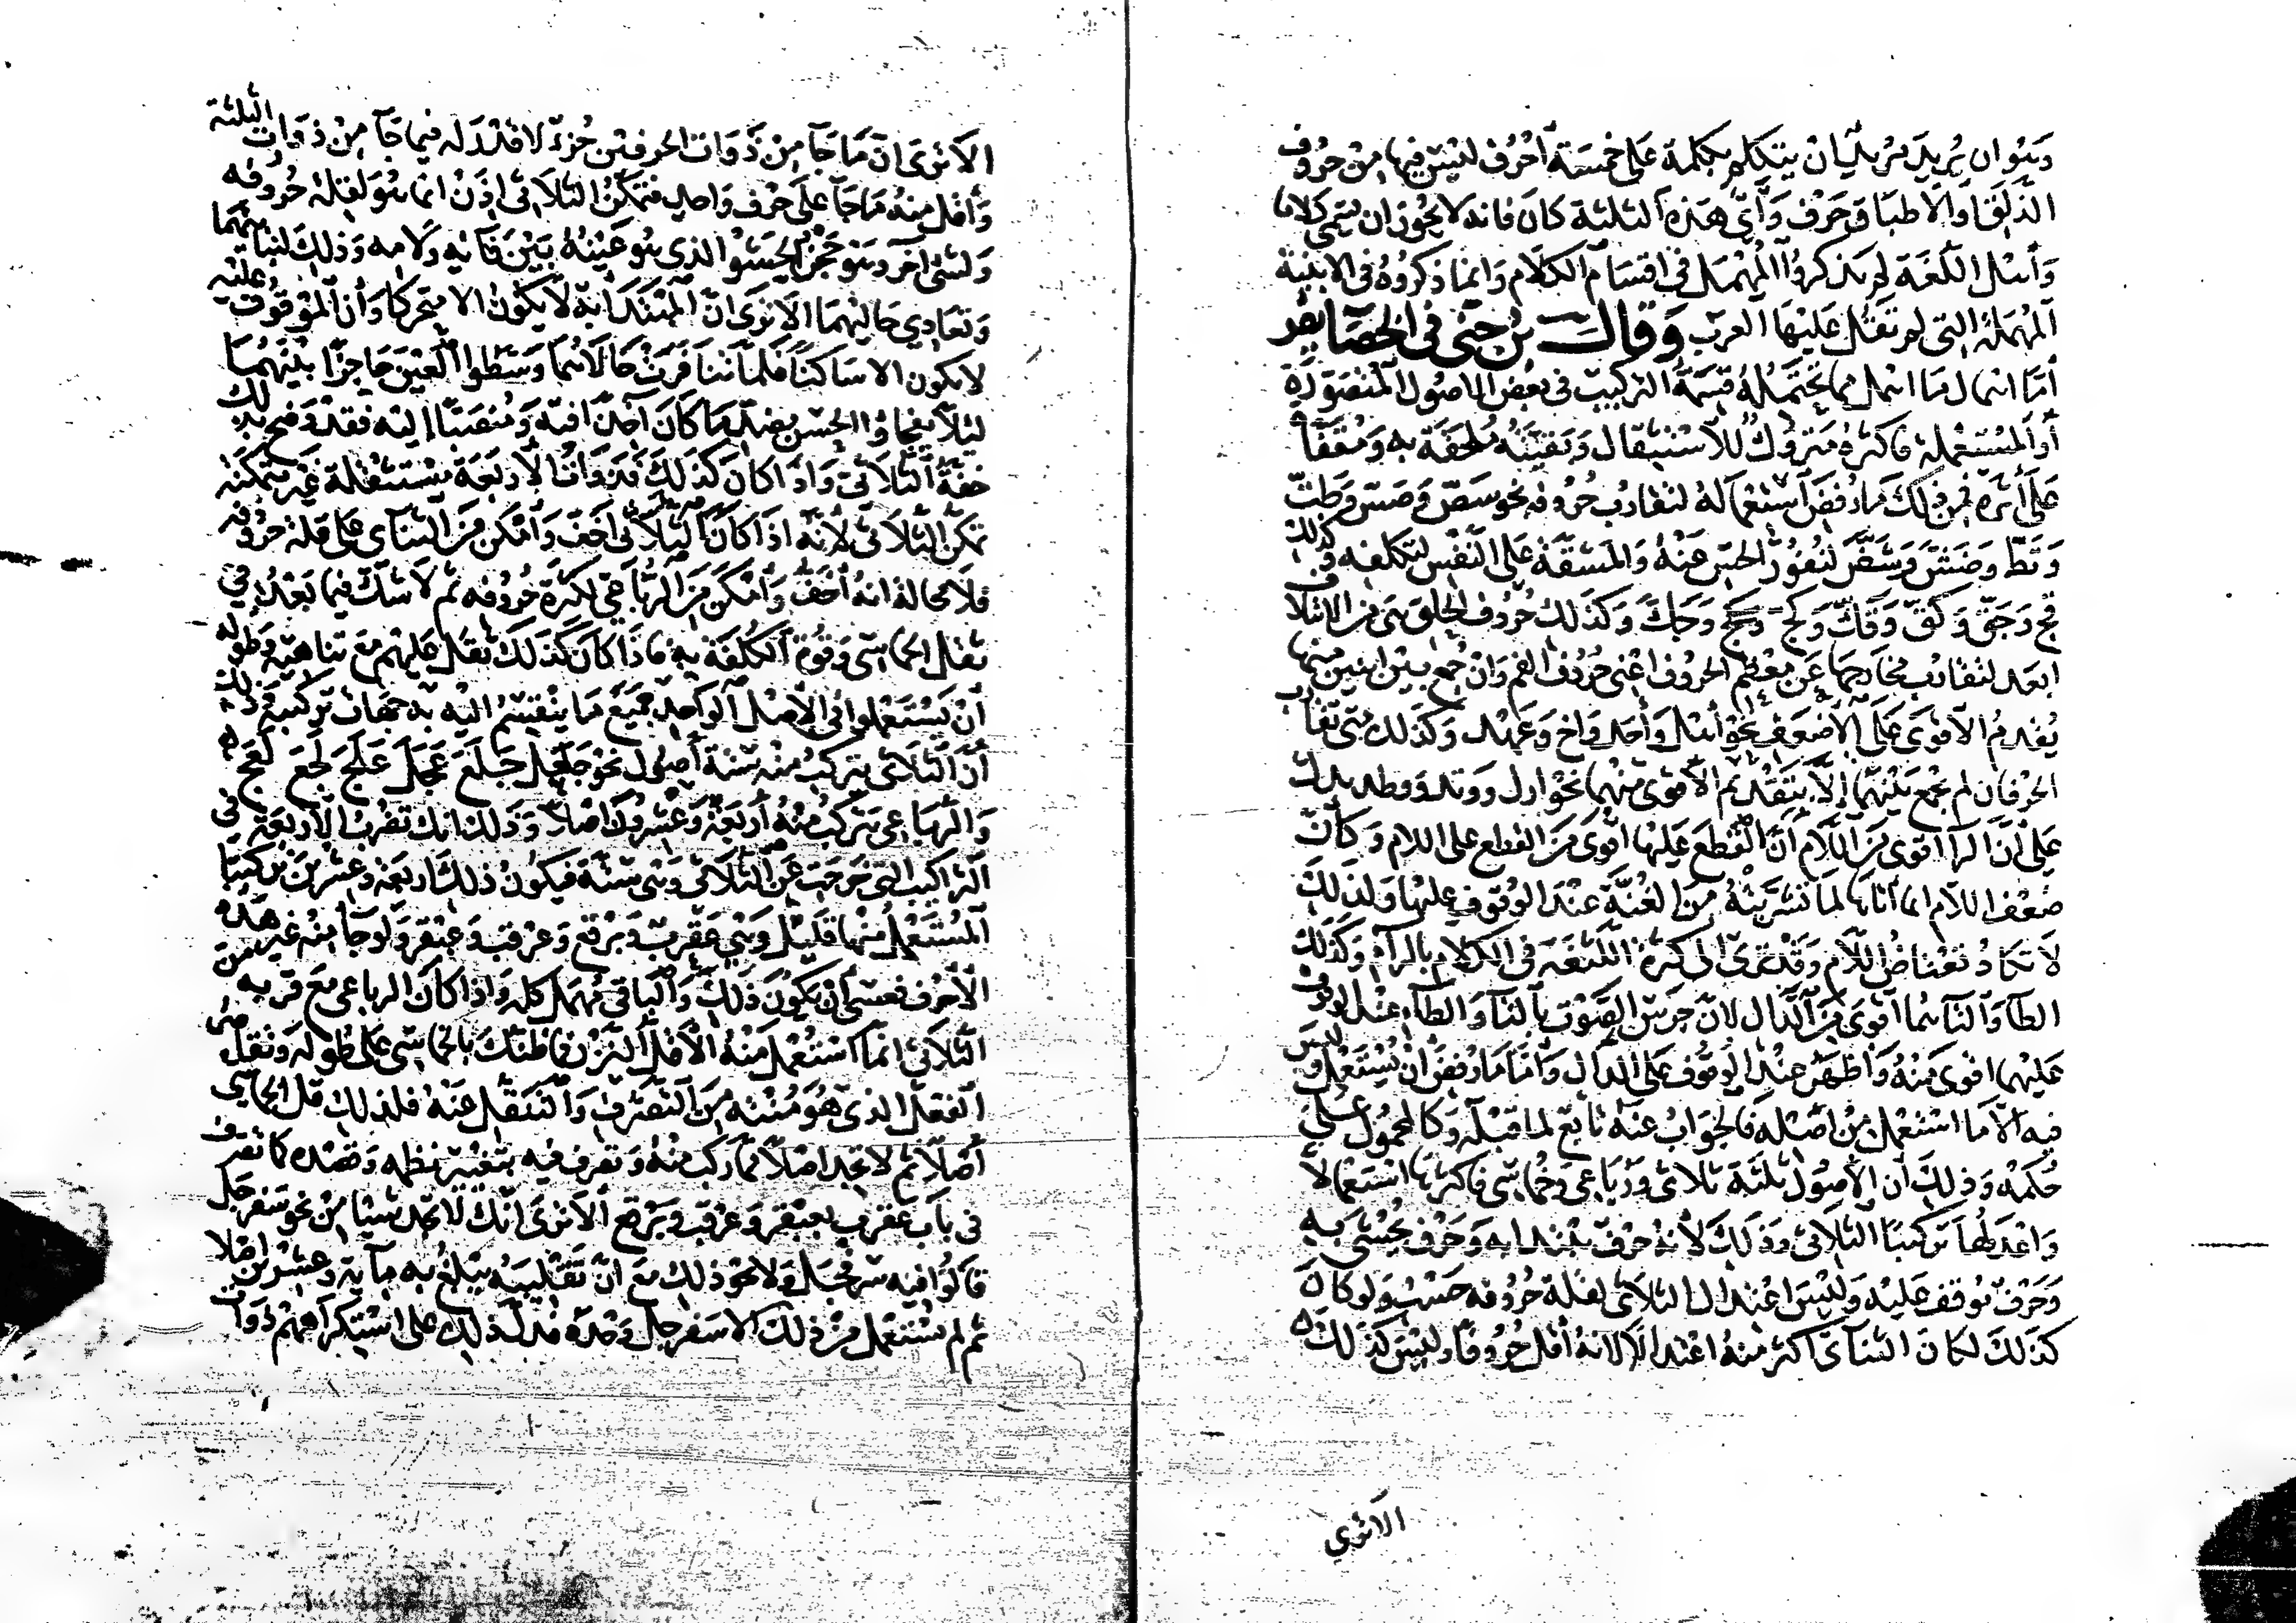 وهو ان يريد مريد ان يتكلم بكلمة على خمسة احرف ليس فيها من حروف
الذلق او الاطباق حرف وأي هذه الثلثة كان فانه لا يجوز ان يسمى كلاما
وأهل اللغة لم يذكروا المهمل في اقسام الكلام وانما ذكروه في الابنية
المهملة التي لم تقل عليها العرب وقال بن جني في الخصايص
أما اهمال ما اهمل مما تحتمله قسمة التركيب في بعض الاصول المتصورة
أو المستعملة فاكثره متروك للاستثقال وبقيته ملحقة به ومقفاة
على أثره فمن ذلك ما رفض استعماله لتقارب حروفه نحو سص وصس وطث
وثظ وضش وشض لنفور الحس عنه والمشقة على النفس لتكلفه وكذلك
قج وجق وكق وقك وكج وجك وكذلك حروف الحلق هي من الائتلاف
ابعد لتقارب مخارجها عن معظم الحروف اعني حروف الفم وان جمع بين اثنين منها
يقدم الاقوى على الاضعف نحو أهل وأحد وأخ وعهد وكذلك متى تقارب
الحرفان لم يجمع بينهما إلا بتقديم الاقوى منهما نحو ارل ووتد ووطد يدلك
على أن الرا اقوى من اللام أن القطع عليها اقوى من القطع على اللام وكأن
ضعف اللام انما أتاها لما تشربته من الغنة عند الوقوف عليها ولذلك
لا تكاد تعتاض اللام وقد ترى الى كثرة اللثغة في الكلام بالراء وكذلك
الطا والتا هما أقوى من الدال لان جرس الصوت بالتا والطاء عند الوقوف
عليهما اقوى منه وأظهر عند الوقوف على الدال وأما ما رفض أن يستعمل وليس
فيه الا ما استعمل من اصله فالجواب عنه تابع لما قبله وكالمحمول على
حكمه وذلك أن الاصول ثلثة ثلاثي ورباعي وخماسي فاكثرها استعمالا
واعدلها تركيبا الثلاثي وذلك لأنه حرف يبتدا به وحرف يحشى به
وحرف يوقف عليه وليس اعتدال الثلاثي لقلة حروفه حسب ولو كان
كذلك لكان الثنائي اكثر منه اعتدالا لانه أقل حروفا وليس كذلك
الا ترى
الا ترى ان ما جا من ذوات الحرفين جزء لا قدر له فيما جا من ذوات الثلثة
وأقل منه ما جا على حرف واحد فتمكن الثلاثي اذن انما هو لقلة حروفه
ولشي آخر وهو حجز الحشو الذي هو عينه بين فائه ولامه وذلك لتباينهما
وتعادي حاليهما الا ترى ان المبتدا به لا يكون الا متحركا وأن الموقوف عليه
لا يكون الا ساكنا فلما تنافرت حالاهما وسطوا العين حاجزا بينهما
ليلا يفجاوا الحس بضد ما كان آخذا فيه ومنصبا إليه فقد وضح بذلك
خفة الثلاثي واذا كان كذلك فذوات الاربعة مستثقلة غير متمكنة
تمكن الثلاثي لأنه اذا كان الثلاثي أخف وأمكن من الثنائي على قلة حروفه
فلا محالة انه أخف وأمكن من الرباعي لكثرة حروفه ثم لا شك فيما بعد في
ثقل الخماسي وقوة الكلفة به فاذا كان كذلك ثقل عليهم مع تناهيه وطوله
أن يستعملوا في الاصل الواحد جميع ما ينقسم اليه به جهات تركيبه وذلك
أن الثلاثي يتركب منه ستة أصول نحو جعل جلع عجل علج لجع لعج
والرباعي يتركب منه أربعة وعشرون اصلا وذلك انك تضرب الاربعة في
التراكيب التي خرجت عن الثلاثي وهي ستة فيكون ذلك أربعة وعشرين تركيبا
المستعمل منها قليل وهي عقرب وبرقع وعرقب وعبقر ولو جا منه غير هذه
الأحرف فعسى أن يكون ذلك والباقي مهمل كله واذا كان الرباعي مع قربه من
الثلاثي انما استعمل منه الأقل النزر فما ظنك بالخماسي على طوله وتقصي
الفعل الذي هو مئنة من التصرف والتنقل عنه فلذلك قل الخماسي
أصلا ثم لا تجد اصلا مما ركب منه وتصرف فيه بتغيير نظمه ونضده كما تصرف
في باب عقرب بعبقر وعرقب وبرقع الا ترى انك لا تجد شيئا من نحو سفرجل
قالوا فيه سرفجل ولا نحو ذلك مع أن تقليبه يبلغ به مائة وعشرين اصلا
ثم لم يستعمل من ذلك الا سفرجل وحده فدل ذلك على استكراههم ذوات